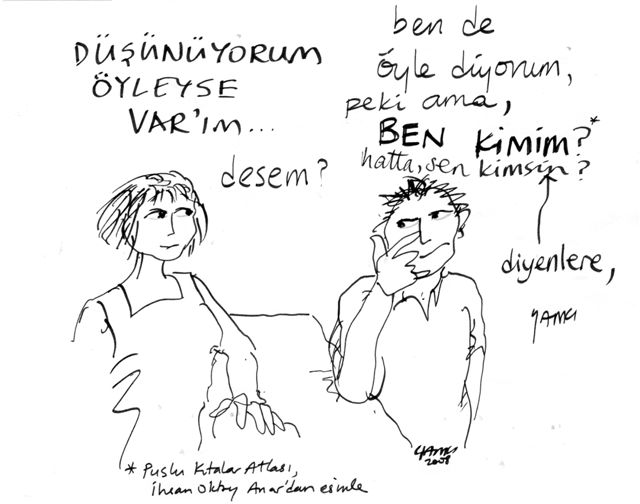 DÜŞÜNÜYORUM
ÖYLEYSE
VAR'IM...
desem?
ben de
öyle diyorum,
peki ama,
BEN KİMİM?*
hatta, sen kimsin?
diyenlere,
YAMCI
YAMCI
2008
* Puslu Kıtalar Atlası,
İhsan Oktay Anar'dan esinle